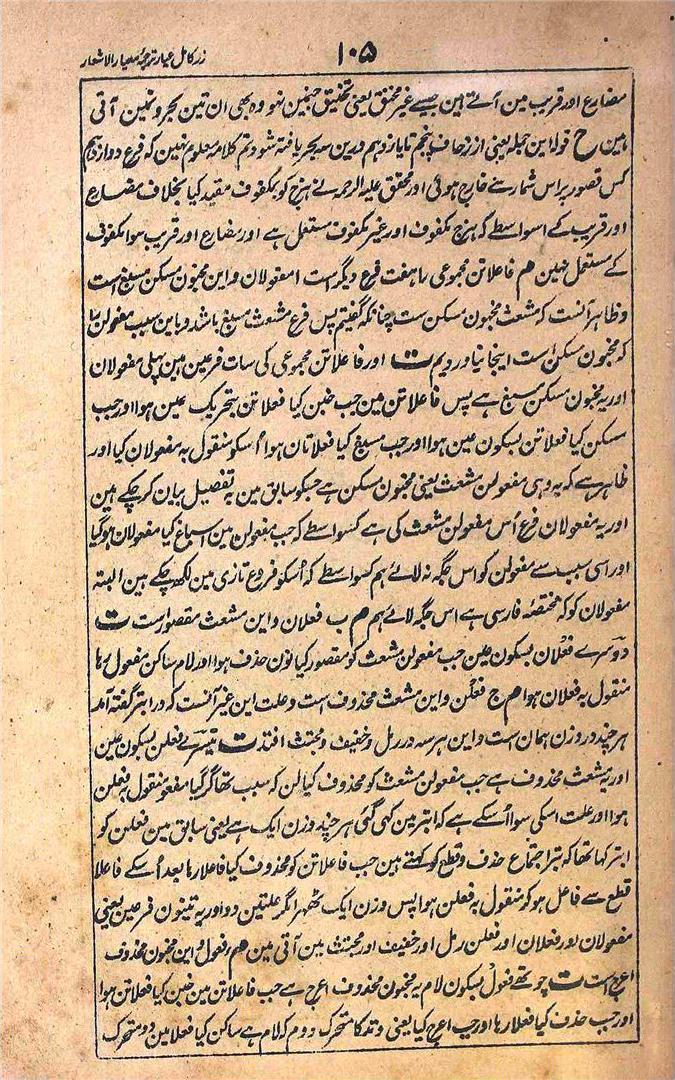 ۱۰۵
زر کامل عیار ترجمہ معیار الاشعار
مضارع اور قریب مین آتے ہین جیسے غیر مخنق یعنی تخنیق جنمین نہو وہ بھی ان تین بحرونمین آتی
ہین ح قولہ این جملہ یعنی از زحاف پنجم تا یازدہم درین سہ بحر یافتہ شود تم کلامہ معلوم نہین کہ فرع دوازدہم
کس قصور پر اس شمار سے خارج ہوئی اور محقق علیہ الرحمہ نے ہزج کو بمکفوف مقید کیا بخلاف مضارع
اور قریب کے اسواسطے کہ ہزج مکفوف اور غیر مکفوف مستعمل ہے اور مضارع اور قریب سوا مکفوف
کے مستعمل نہین ہم فاعلاتن مجموعی را ہفت فرع دیگر است ا مفعولان و این مخبون مسکن مسبغ است
و ظاہر آنست کہ مشعث مخبون مسکن ست چنانکہ گفتیم پس فرع مشعث مسبغ باشد و باین سبب مفعولن را
کہ مخبون مسکن است اینجا نیاوردیم ت اور فاعلاتن مجموعی کی سات فرعین ہین پہلی مفعولان
اور یہ مخبون مسکن مسبغ ہے پس فاعلاتن مین جب خبن کیا فعلاتن بتحریک عین ہوا اور جب
مسکن کیا فعلاتن بسکون عین ہوا اور جب مسبغ کیا فعلاتان ہوا اُسکو منقول بہ مفعولان کیا اور
ظاہر ہے کہ یہ وہی مفعولن مشعث یعنی مخبون مسکن ہے جسکو سابق مین بہ تفصیل بیان کر چکے ہین
اور یہ مفعولان فرع اُس مفعولن مشعث کی ہے کسواسطے کہ جب مفعولن مین اسباغ کیا مفعولان ہوگیا
اور اسی سبب سے مفعولن کو اس جگہ نہ لائے ہم کسواسطے کہ اُسکو فروع تازی مین لکھ چکے ہین البتہ
مفعولان کو کہ مختصۂ فارسی ہے اس جگہ لائے ہم م ب فعلان و این مشعث مقصور است ت
دوسرے فعْلان بسکون عین جب مفعولن مشعث کو مقصور کیا نون حذف ہوا اور لام ساکن مفعول رہا
منقول بہ فعلان ہوا م ج فعلن و این مشعث محذوف است و علت این غیر آنست کہ در ابتر گفتہ آمد
ہر چند در وزن ہمان است و این ہر سہ در رمل و خفیف و مجتث افتد ت تیسرے فعلن بسکون عین
اور یہ مشعث محذوف ہے جب مفعولن مشعث کو محذوف کیا لن کہ سبب تھا گر گیا مفعو منقول بہ فعلن
ہوا اور علت اسکی سوا اُسکے ہے کہ ابتر مین کہی گئی ہر چند وزن ایک ہے یعنی سابق مین فعلن کو
ابتر کہا تھا کہ بتر اجتماع حذف و قطع کو کہتے ہین جب فاعلاتن کو محذوف کیا فاعلا رہا بعد اُسکے فاعلا
قطع سے فاعل ہو کر منقول بہ فعلن ہوا پس وزن ایک ٹھہرا مگر علتین دو اور یہ تینون فرعین یعنی
مفعولان اور فعلان اور فعلن رمل اور خفیف اور مجتث مین آتی مین ھم د فعول و این مخبون محذوف
اعرج است ت چوتھے فعول بسکون لام یہ مخبون محذوف اعرج ہے جب فاعلاتن مین خبن کیا فعلاتن ہوا
اور جب حذف کیا فعلا رہا اور جب اعرج کیا یعنی وتد کا متحرک دوم کہ لام ہے ساکن کیا فعلا مین دو متحرک